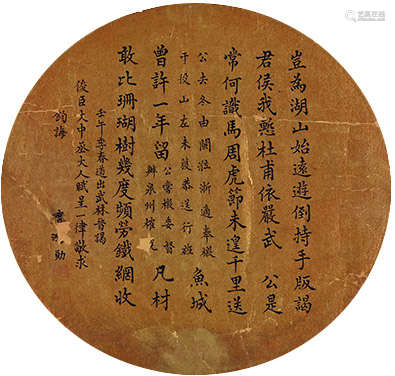 岂為湖山始遠遊倒持手版謁
君侯我慙杜甫依嚴武　公是
常何識馬周虎節未遑千里送
公去冬由閩𦲷浙適奉檄
于役山左未獲恭送行旌
魚城
曾許一年留
公嘗檄委督
辦泉州榷
凡材
敢比珊瑚樹幾度頻勞鐵網收
壬午季春道出武林晉揭
俊臣大中丞大人賦呈一律敬求
鈞誨
勋